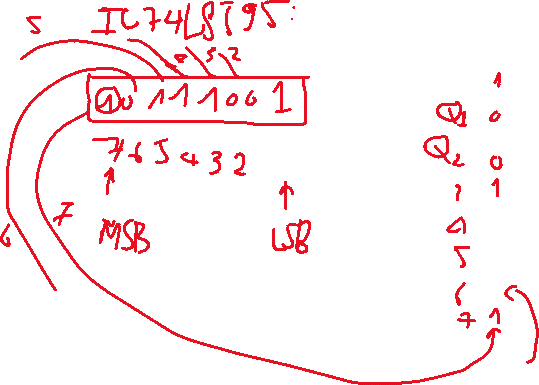 5 IC74LST95:
4 3 2
10111001
7 6 5 4 3 2
MSB LSB
6 7
1
Q1 0
Q2 0
3 1
4
5
6
7 1